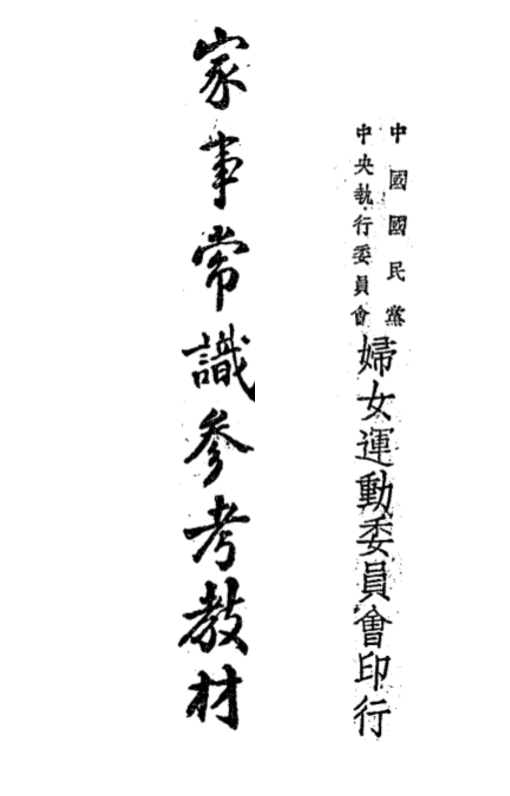 中國國民黨
中央執行委員會
婦女運動委員會印行
家事常識參考教材